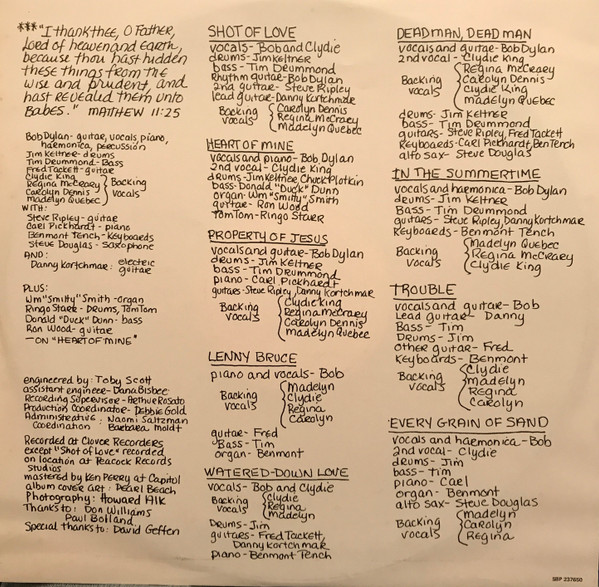 ***"I thank thee, O Father,
Lord of heaven and Earth,
because thou hast hidden
these things from the
wise and prudent, and
hast revealed them unto
Babes." MATTHEW 11:25
Bob Dylan - guitar, vocals, piano,
harmonica, percussion
Jim Keltner - drums
Tim Drummond - Bass
Fred Tackett - guitar
Clydie King
Regina McCrary
Carolyn Dennis
madelyn Quebec
Backing
vocals
WITH:
Steve Ripley - guitar
Carl Pickhardt - piano
Benmont Tench - Keyboards
Steve Douglas - saxophone
AND:
Danny Kortchmar: electric
guitar
PLUS:
Wm "Smitty" Smith - organ
Ringo Starr - Drums, TomTom
Donald "Duck" Dunn - bass
Ron Wood - guitar
— ON "HEART OF MINE"
engineered by: Toby Scott
assistant engineer - Dana Bisbee
Recording Supervisor - Arthur Rosato
Production Coordinator - Debbie Gold
Administrative: Naomi Saltzman
Coordination Barbara Moldt
Recorded at Clover Recorders
except "Shot of Love" recorded
on location at Peacock Records
Studios
mastered by Ken Perry at Capitol
album cover art: Pearl Beach
Photography: Howard Alk
Thanks to: Don Williams
Paul Botland
Special thanks to: David Geffen
SHOT OF LOVE
vocals - Bob and Clydie
drums - Jim Keltner
bass - Tim Drummond
Rhythm guitar - Bob Dylan
2nd guitar - Steve Ripley
lead guitar - Danny Kortchmar
Backing
vocals
Carolyn Dennis
Regina McCrary
madelyn Quebec
HEART OF MINE
vocals and piano - Bob Dylan
2nd vocal - Clydie King
drums - Jim Keltner, Chuck Plotkin
bass - Donald "Duck" Dunn
organ - Wm "Smitty" Smith
guitar - Ron Wood
TomTom - Ringo Starr
PROPERTY OF JESUS
vocals and guitar - Bob Dylan
drums - Jim Keltner
bass - Tim Drummond
piano - Carl Pickhardt
guitars - Steve Ripley, Danny Kortchmar
Backing
vocals
Clydie King
Regina McCrary
Carolyn Dennis
madelyn Quebec
LENNY BRUCE
piano and vocals - Bob
Backing
vocals
Madelyn
Clydie
Regina
Carolyn
guitar - Fred
Bass - Tim
organ - Benmont
WATERED-DOWN LOVE
vocals - Bob and Clydie
Backing
vocals
Clydie
Regina
madelyn
Drums - Jim
guitars - Fred Tackett,
Danny Kortchmar
piano - Benmont Tench
DEAD MAN, DEAD MAN
vocals and guitar - Bob Dylan
2nd vocal - Clydie King
Backing
vocals
Regina McCrary
Carolyn Dennis
Clydie King
madelyn Quebec
drums - Jim Keltner
bass - Tim Drummond
guitars - Steve Ripley, Fred Tackett
Keyboards - Carl Pickhardt, Ben Tench
alto sax - Steve Douglas
IN THE SUMMERTIME
vocals and harmonica - Bob Dylan
drums - Jim Keltner
Bass - Tim Drummond
guitars - Steve Ripley, Danny Kortchmar
Keyboards - Benmont Tench
Backing
vocals
Madelyn Quebec
Regina McCrary
Clydie King
TROUBLE
vocals and guitar - Bob
Lead guitar - Danny
Bass - Tim
Drums - Jim
other guitar - Fred
Keyboards - Benmont
Backing
vocals
Clydie
madelyn
Regina
Carolyn
EVERY GRAIN OF SAND
vocals and harmonica - Bob
2nd vocal - Clydie
drums - Jim
bass - Tim
piano - Carl
organ - Benmont
alto sax - Steve Douglas
Backing
vocals
madelyn
Carolyn
Regina
SBP 237650